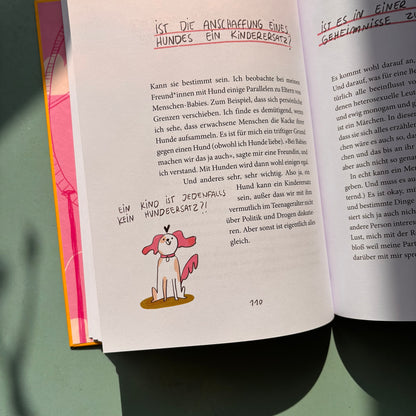 IST DIE ANSCHAFFUNG EINES
HUNDES EIN KINDERERSATZ?
Kann sie bestimmt sein. Ich beobachte bei meinen
Freund*innen mit Hund einige Parallelen zu Eltern von
Menschen-Babies. Zum Beispiel, dass sich persönliche
Grenzen verschieben. Ich finde es demütigend, wenn
ich sehe, dass erwachsene Menschen die Kacke ihrer
Hunde aufsammeln. Es ist für mich ein triftiger Grund
gegen einen Hund (obwohl ich Hunde liebe). »Bei Babies
machen wir das ja auch«, sagte mir eine Freundin, und
ich verstand. Mit Hunden wird dann wohl einiges egal.
Und anderes sehr, sehr wichtig. Also ja, ein
Hund kann ein Kinderersatz
sein, außer dass wir mit ihm
vermutlich im Teenageralter nicht
über Politik und Drogen diskutie-
ren. Aber sonst ist eigentlich alles
gleich.
EIN KIND IST JEDENFALLS
KEIN HUNDEERSATZ?!
110
IST ES IN EINER
GEHEIMNISSE Z
Es kommt wohl darauf an,
Und darauf, was für eine
türlich alle beeinflusst vo
denen heterosexuelle Leut
und ewig monogam und
ist ein Märchen. In dieser
dass sie sich alles erzählen
wäre es auch so, da
und das bis an ihr
aber auch nicht so genau
In echt kann ein Mensch
ed. Und muss es au
ted.) Es ist okay, m
und bestimmte Dinge
siert sich ja auch nicht
andere Person interes
Lust, mich mit der R
bloß weil meine Part
darüber mit mir spre